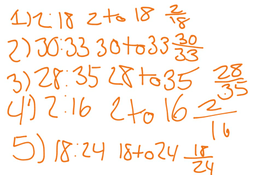 1) 2:18 2 to 18 2/18
2) 30:33 30 to 33 30/33
3) 28:35 28 to 35 28/35
4) 2:16 2 to 16 2/16
5) 18:24 18 to 24 18/24